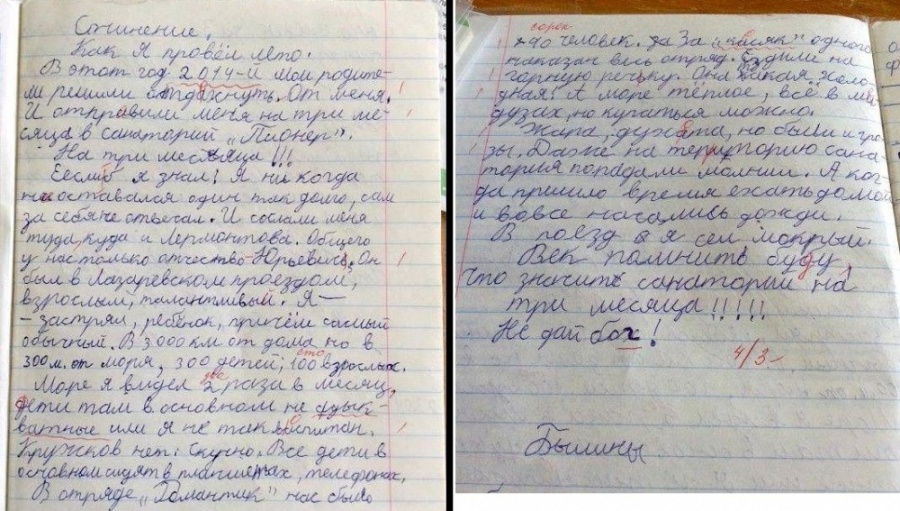 Сочинение.
Как я провёл лето.
В этот год 2014-й мои родите-
ли решили отдахнуть. От меня.
И отправили меня на три ме-
сяца в санаторий „Пионер".
На три месяца!!!
Еслиб я знал! Я ни когда
не оставался один так долго, сам
за себя не отвечал. И сослали меня
туда, куда и Лермонтова. Общего
у нас только отчество-Юрьевичь. Он
был в Лазаревском проездом,
взрослым, талантливый. Я-
- застрял, ребёнок, причём самый
обычный. В 3000 км от дома но в
300 м. от моря, 300 детей, 100 взрослых.
сто
Море я видел 2 раза в месяц,
два
дети там в основном не адык-
ватные или я не так воспитан.
Кружков нет. Скучно. Все дети в
основном сидят в планшетах, телефонах,
В отряде „Романтик" нас было
сорок
40 человек. за За „касяк" одного
наказан весь отряд. Ездили на
горную речьку. Она какая, холо-
дная! А море тёплое, всё в ме
дузах, но купаться можно.
Жара, духота, но были и гро-
зы. Даже на территорию сана-
тория попадали молнии. А ког-
да пришло время ехать домой
и вовсе начались дожди.
В поезд я сел мокрый.
Век помнить буду,
что значить санаторий на
три месяца!!!!!
Не дай бог!
4/3-
Былины